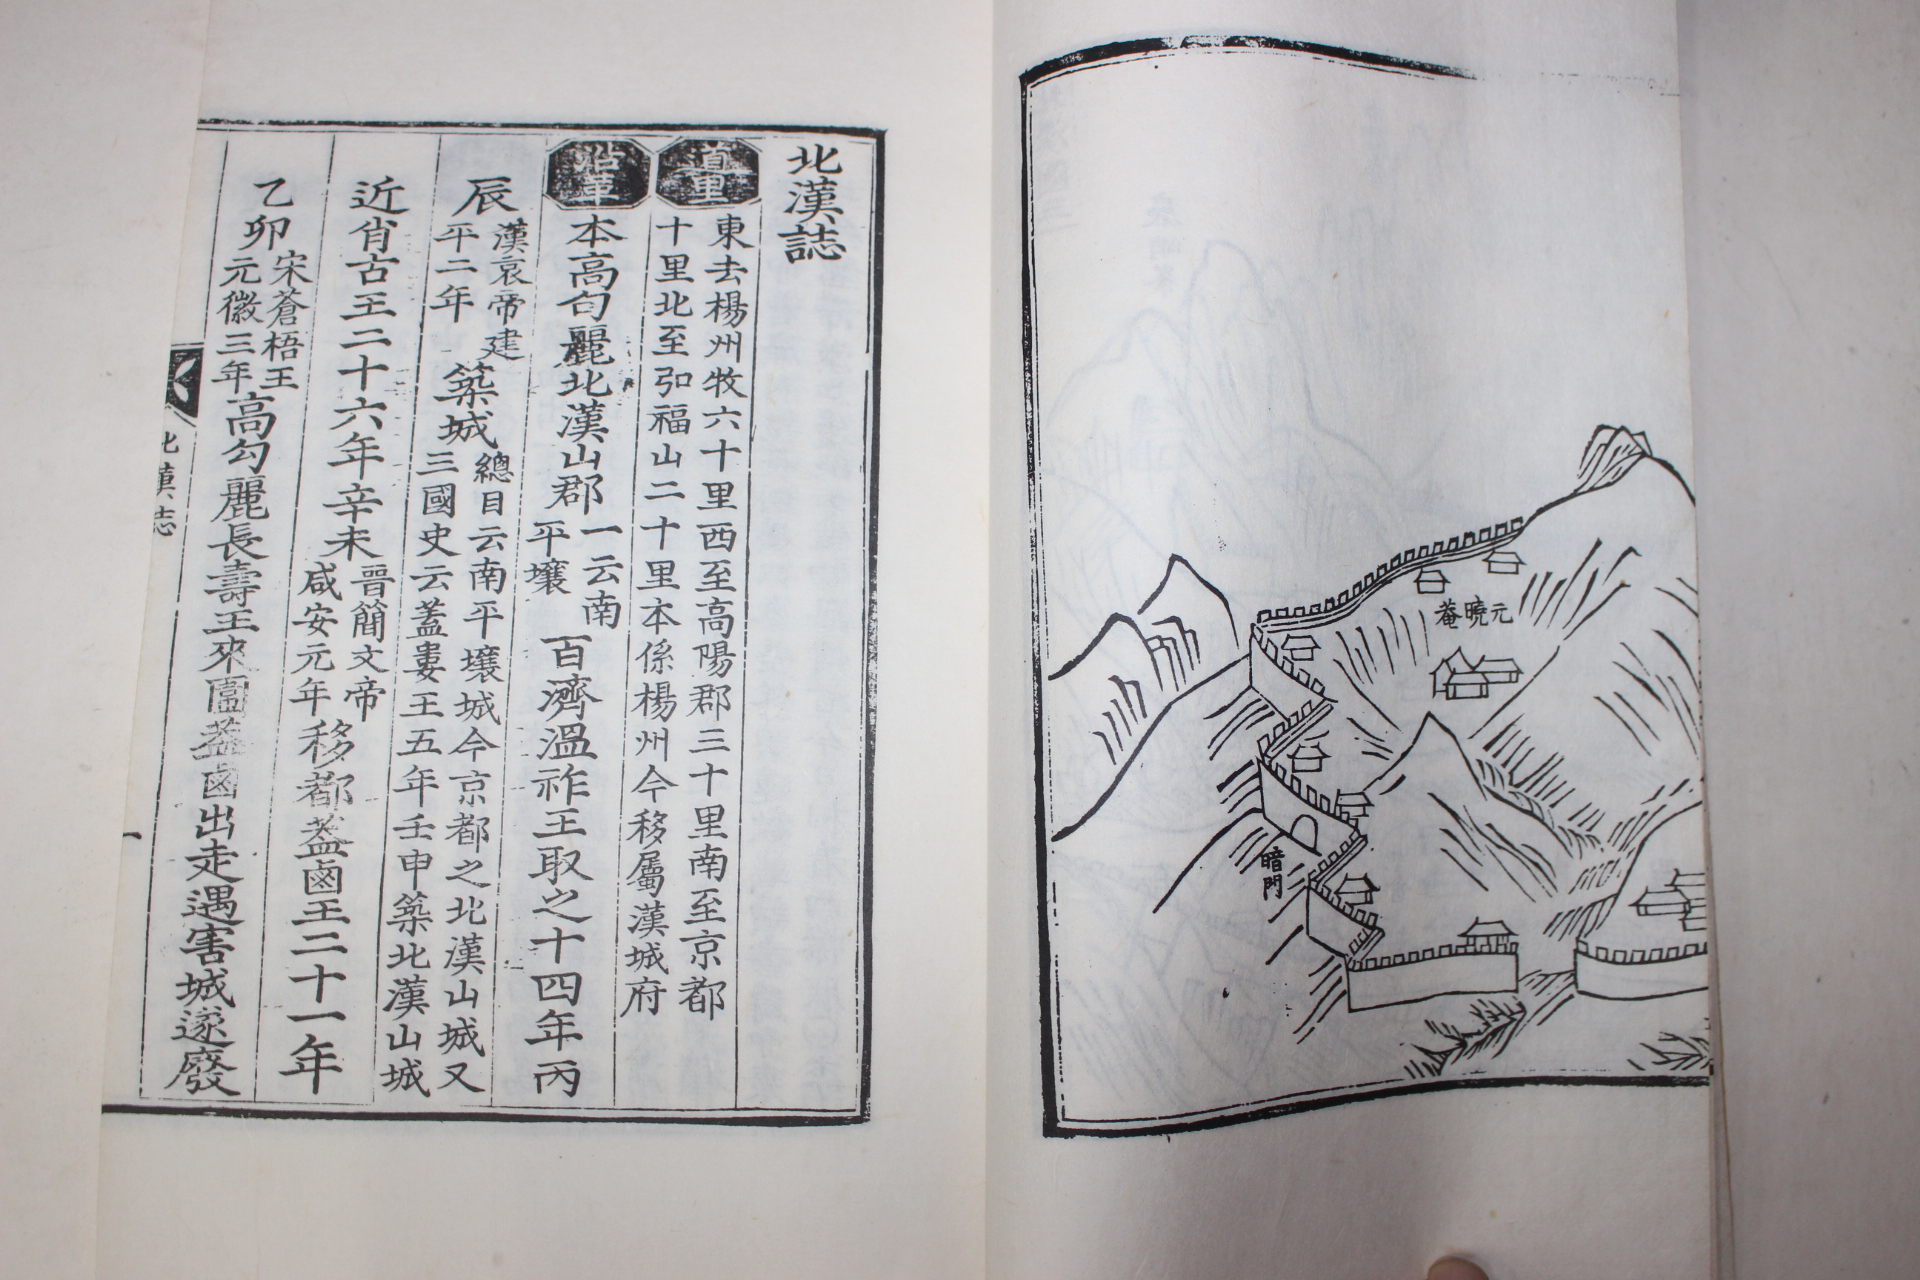 元曉菴
暗門
北漢誌
道里
東去楊州牧六十里西至高陽郡三十里南至京都
十里北至弘福山二十里本係楊州今移屬漢城府
沿革
本高句麗北漢山郡
一云南
平壤
百濟溫祚王取之十四年丙
辰
漢哀帝建
平二年
築城
總目云南平壤城今京都之北漢山城又
三國史云蓋婁王五年壬申築北漢山城
近肖古王二十六年辛未
晉簡文帝
咸安元年
移都蓋鹵王二十一年
乙卯
宋蒼梧王
元徽三年
高勾麗長壽王來圍蓋鹵出走遇害城遂廢
北漢誌
一